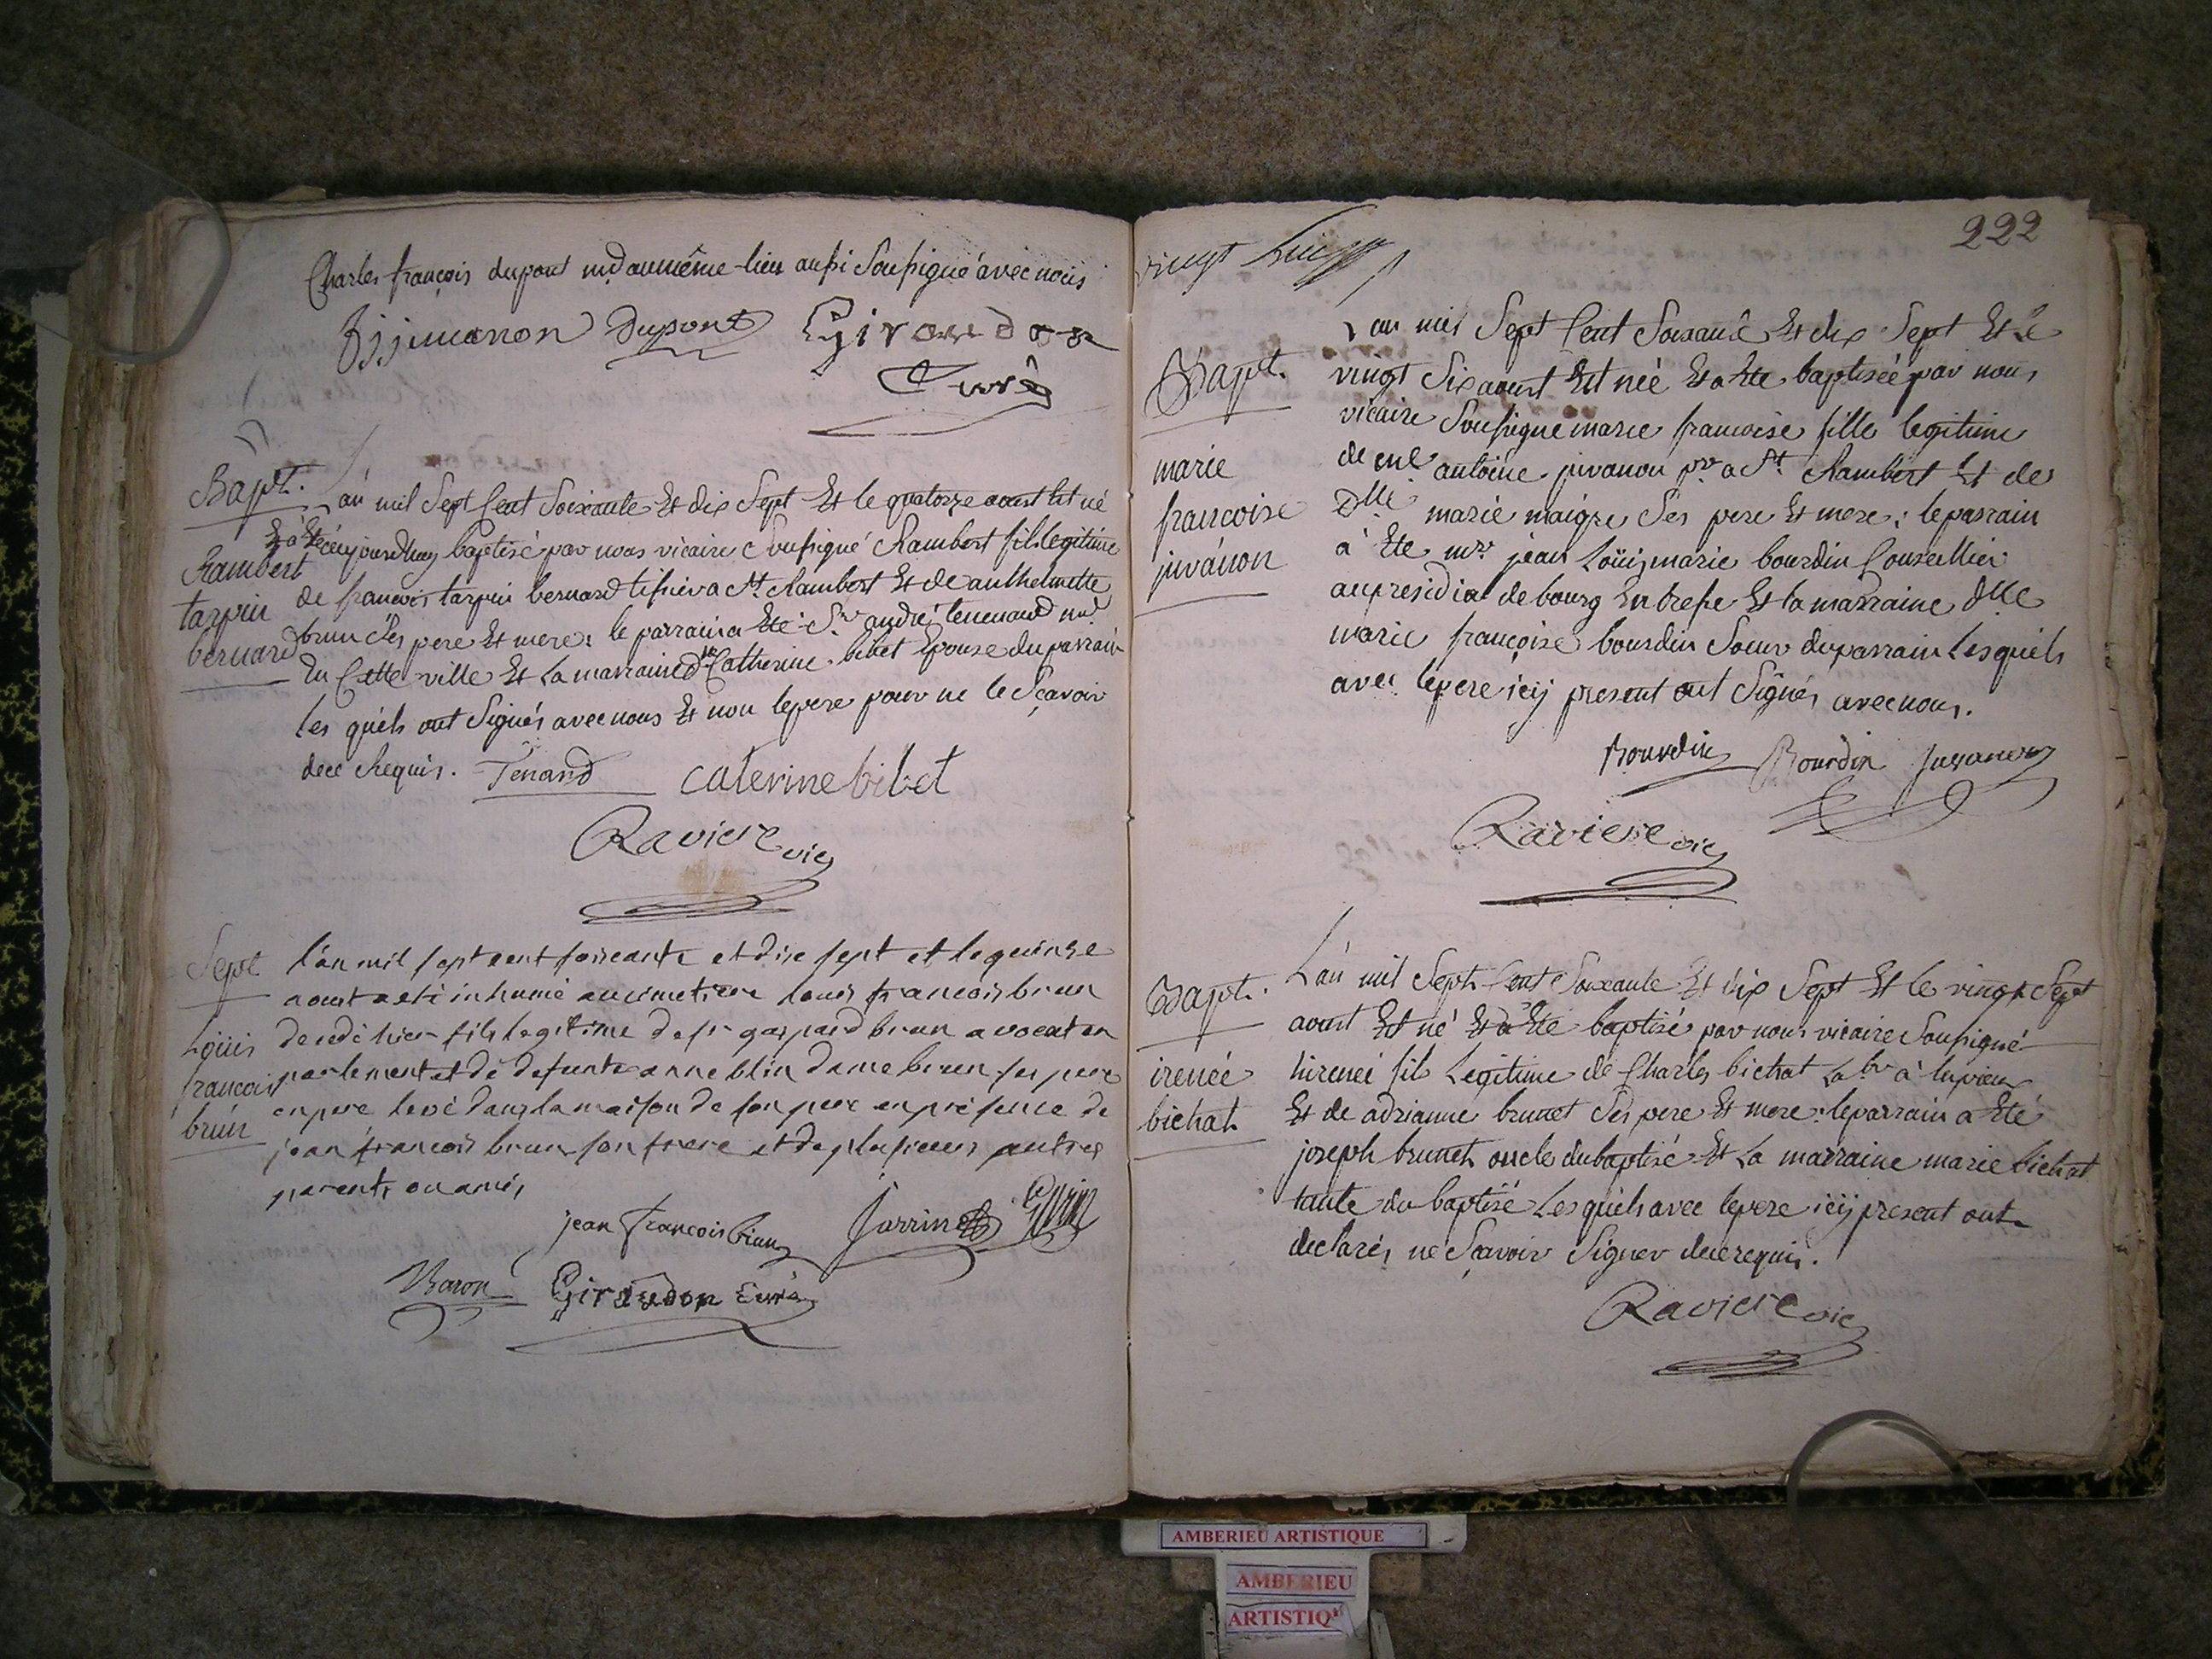 Charles françois dupont md au même lieu aussi Soussigné avec nous
jumanon dupont Giroudon
Curé
Bapt.
Rambert
tarpin
bernard
L'an mil Sept Cent Soixante Et dix Sept Et le quatorze aoust Est né
Et a Eté cejourdhuy baptisé par nous vicaire Soussigné Rambert fils legitime
de francois tarpin bernard tissier a St Rambert Et de anthelmette
brun Ses pere Et mere: le parrain a Eté Sr andré tenenand md
En Cette ville Et La marraine dlle Catherine bibet Epouse du parrain
les quels ont Signés avec nous Et non le pere pour ne le Sçavoir
de ce Requis. Tenand caterine bibet
Raviere vic
Sept
Loüis
francois
brun
l'an mil sept cent soixante et dix sept et le quinze
aoust a eté inhumé au cimetiere louis francois brun
decedé hier fils legitime de sr gaspard brun avocat en
parlement et de defunte anne blin dame brun ses pere
en pere levé dans la maison de son pere en présence de
jean françois brun son frere et de plusieurs autres
parents ou amis
jean francois brun Jarrin
Baron Giroudon Curé
222
vingt huit
Bapt.
marie
francoise
juvanon
L'an mil Sept Cent Soixante Et dix Sept Et le
vingt Six aoust Est née Et a Eté baptiseé par nous
vicaire Soussigné marie francoise fille legitime
de me antoine juvanon pr a St Rambert Et de
Dlle marie maigre Ses pere Et mere: le parrain
a Ete mr jean Loüis marie bourdin Conseillier
au presidial de bourg En bresse Et la marraine dlle
marie françoise bourdin Soeur du parrain Lesquels
avec le pere icy present ont Signés avec nous.
Bourdin Bourdin Juvanon
Raviere vic
Bapt.
irenée
bichat
L'an mil Sept Cent Soixante Et dix Sept Et le vingt Sept
aoust Est né Et a Eté baptisé par nous vicaire Soussigné
hireneé fils Legitime de Charles bichat Labr à lupieu
Et de adrianne brunet Ses pere Et mere: le parrain a Eté
joseph brunet oncle du baptisé Et La marraine marie bichat
tante du baptisé Lesquels avec le pere icy present ont
declarés ne Sçavoir Signer de ce requis.
Raviere vic
AMBERIEU ARTISTIQUE
AMBERIEU
ARTISTIQ